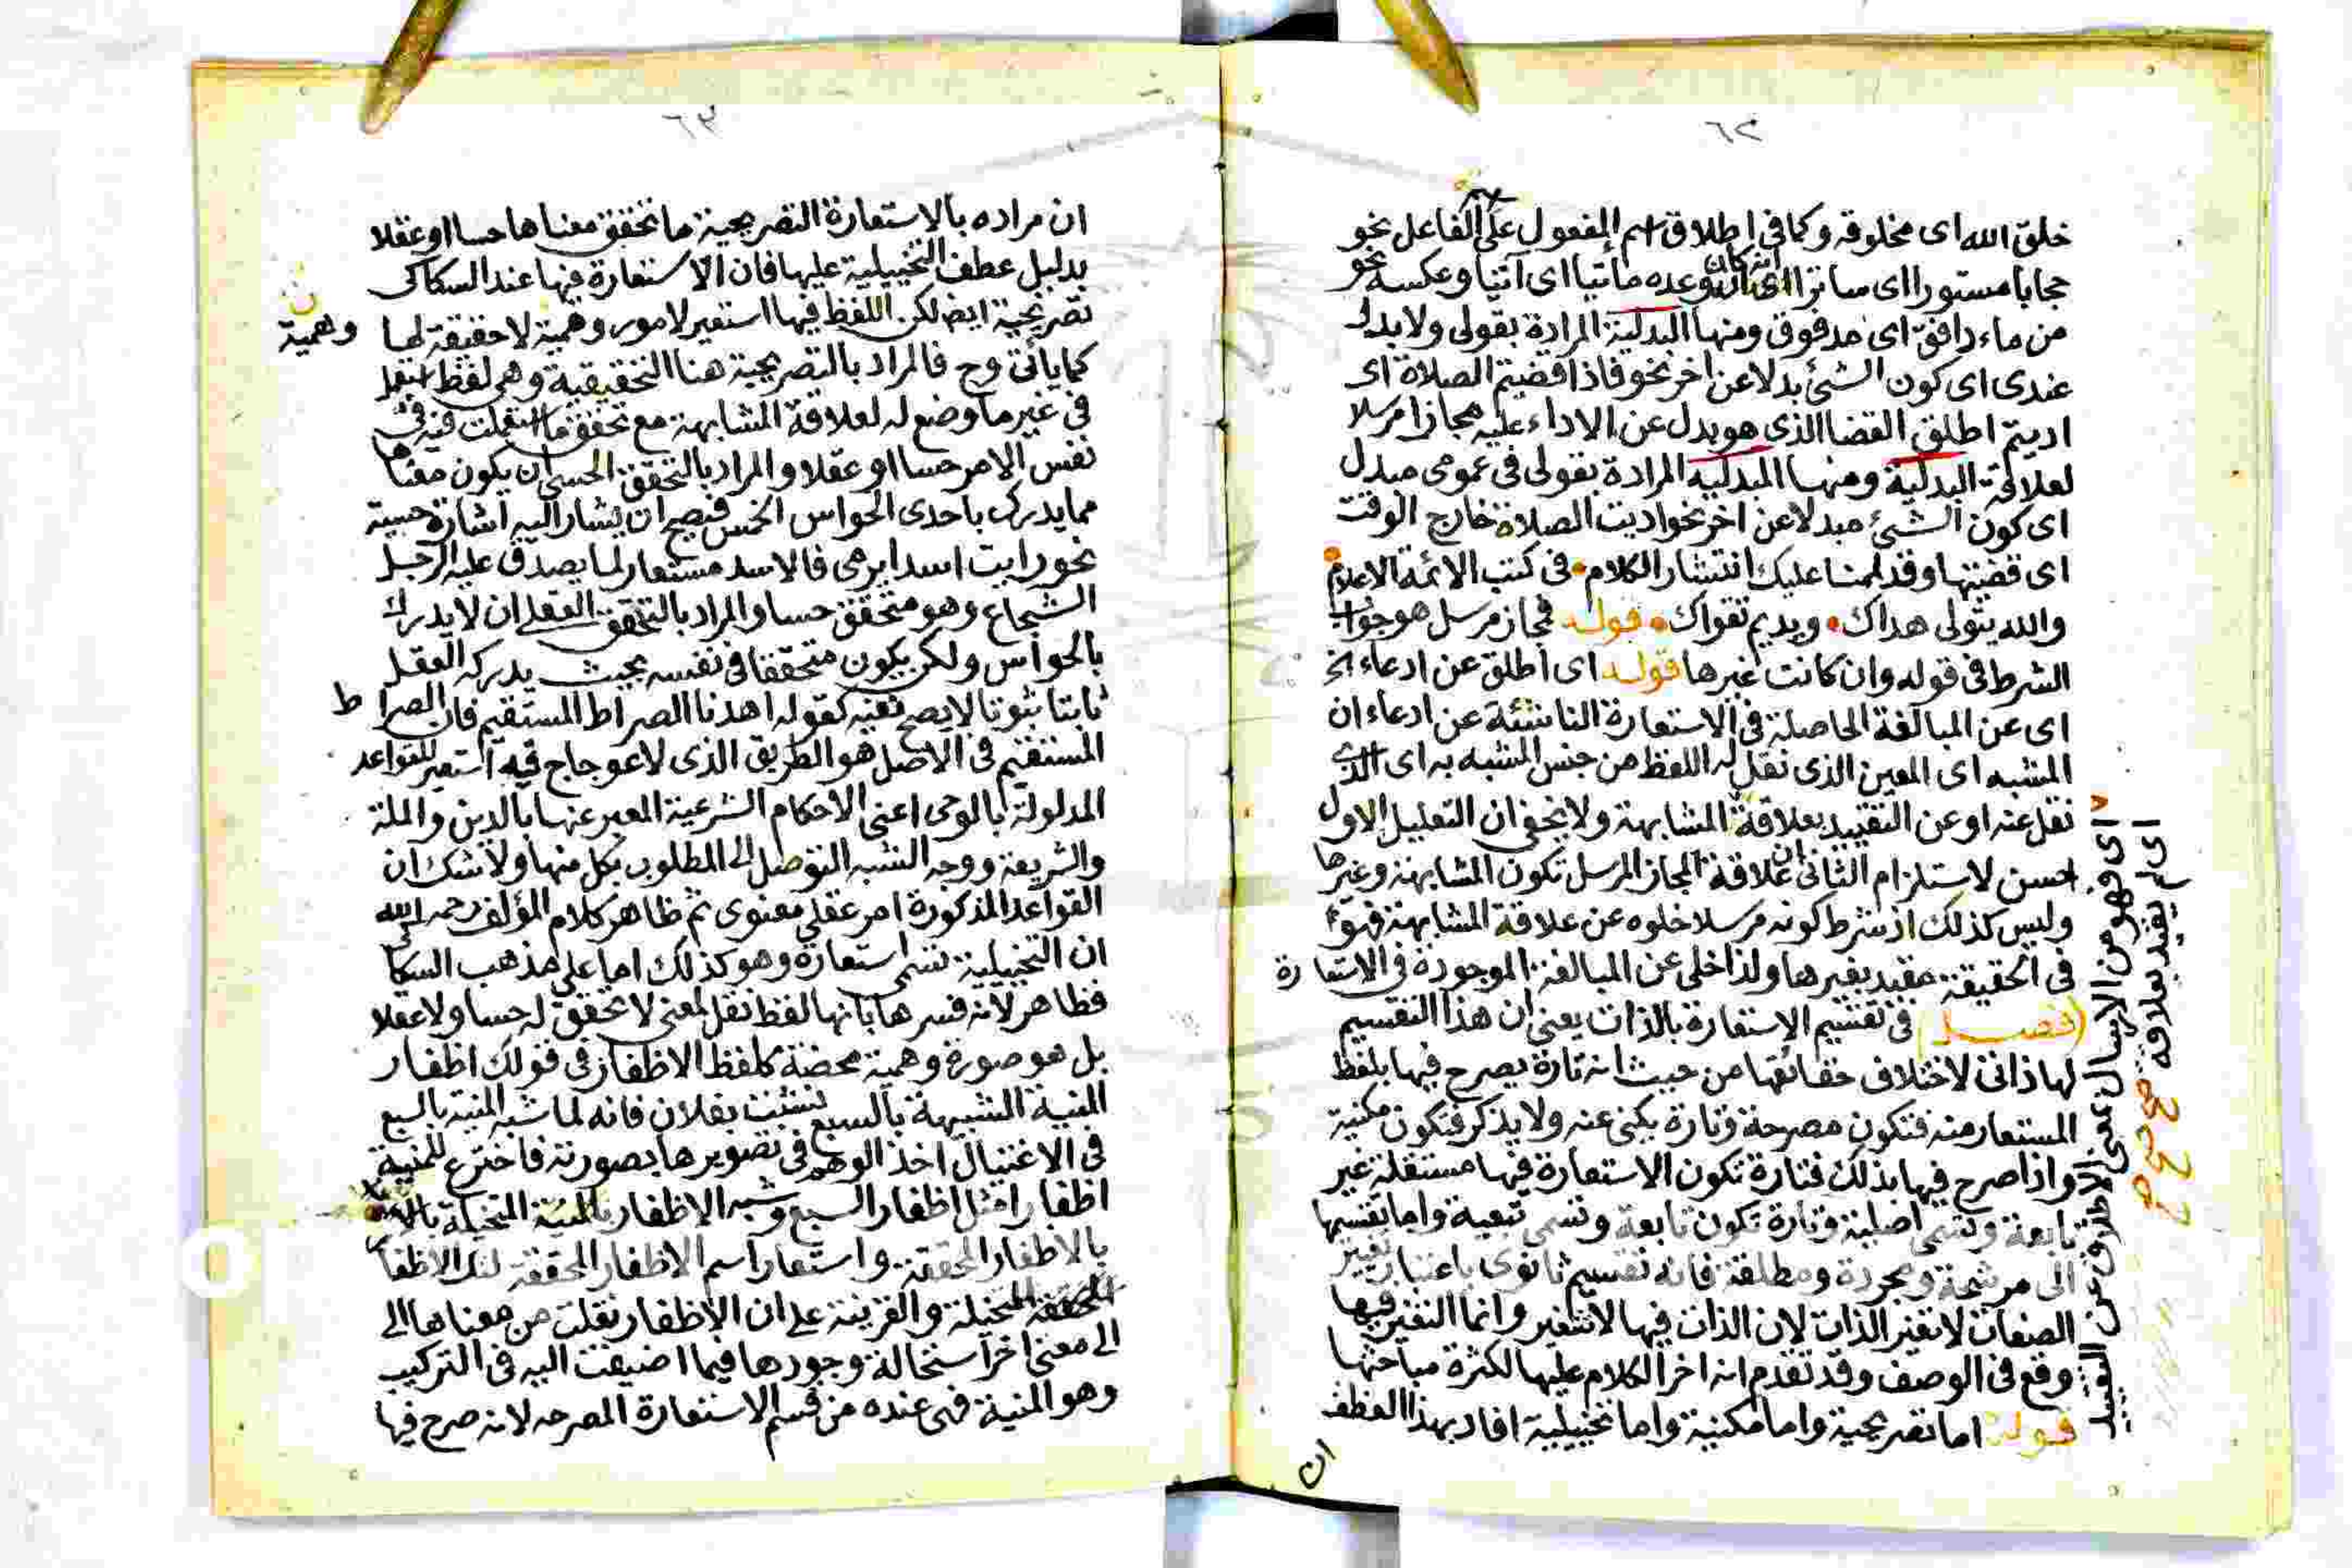 ٦٢
خلق الله اى مخلوقه وكما فى اطلاق اسم المفعول على الفاعل نحو
حجابا مستورا اى ساترا انه كان وعده مأتيا اى آتيا وعكسه نحو
من ماء دافق اى مدفوق ومنها البدلية المرادة بقولى ولا بدل
عندى اى كون الشئ بدلا عن اخر نحو فاذا قضيتم الصلاة اى
اديتم اطلق القضا الذى هو بدل عن الاداء عليه مجازا مرسلا
لعلاقة البدلية ومنها المبدلية المرادة بقولى فى عمومى مبدل
اى كون الشئ مبدلا عن اخر نحو اديت الصلاة خارج الوقت
اى قضيتها وقد لممنا عليك انتشار الكلام فى كتب الائمة الاعلام
والله يتولى هداك ويديم تقواك قوله فمجاز مرسل هو جواب
الشرط فى قوله وان كانت غيرها قوله اى اطلق عن ادعاء الخ
اى عن المبالغة الحاصلة فى الاستعارة الناشئة عن ادعاء ان
المشبه اى المعين الذى نقل له اللفظ من جنس المشبه به اى الذى
نقل عنه او عن التقييد بعلاقة المشابهة ولا يخفى ان التعليل الاول
احسن لاستلزام الثانى ان علاقة المجاز المرسل تكون المشابهة وغيرها
وليس كذلك اذ شرط كونه مرسلا خلوه عن علاقة المشابهة فهو
فى الحقيقة مقيد بغيرها ولذا خلى عن المبالغة الموجودة فى الاستعارة
(فصل) فى تقسيم الاستعارة بالذات يعنى ان هذا التقسيم
لها ذاتى لاختلاف حقائقها من حيث انه تارة يصرح فيها بلفظ
المستعار منه فتكون مصرحة وتارة يكنى عنه ولا يذكر فتكون مكنية
واذا صرح فيها بذلك فتارة تكون الاستعارة فيها مستقلة غير
تابعة وتسمى اصلية وتارة تكون تابعة وتسمى تبعية واما تقسيمها
الى مرشحة ومجردة ومطلقة فانه تقسيم ثانوى باعتبار تغيير
الصفات لا تغير الذات لان الذات فيها لا تتغير وانما التغير فيها
وقع فى الوصف وقد تقدم انه اخر الكلام عليها لكثرة مباحثها
قوله اما تصريحية واما مكنية واما تخييلية افاد بهذا العطف
ان
اى فهو من الارسال بمعنى الاطلاق عن التقييد
اى لم يقيد بعلاقة
٦٣
ان مراده بالاستعارة التصريحية ما تحقق معناها حسا او عقلا
بدليل عطف التخييلية عليها فان الاستعارة فيها عند السكاكى
تصريحية ايضا لكن اللفظ فيها استعير لامور وهمية لا حقيقة لها
وهمية
كما يأتى وح فالمراد بالتصريحية هنا التحقيقية وهى لفظ استعمل
فى غير ما وضع له لعلاقة المشابهة مع تحقق ما استعملت فيه فى
نفس الامر حسا او عقلا والمراد بالتحقق الحسى ان يكون معناها
مما يدرك باحدى الحواس الخمس فيصح ان يشار اليه اشارة حسية
نحو رايت اسدا يرمى فالاسد مستعار لما يصدق عليه الرجل
الشجاع وهو متحقق حسا والمراد بالتحقق العقلى ان لا يدرك
بالحواس ولكن يكون متحققا فى نفسه بحيث يدركه العقل
ثابتا ثبوتا لا يصح نفيه كقوله اهدنا الصراط المستقيم فان الصراط
المستقيم فى الاصل هو الطريق الذى لا عوجاج فيه استعير للقواعد
المدلولة بالوحى اعنى الاحكام الشرعية المعبر عنها بالدين والملة
والشريعة ووجه الشبه التوصل الى المطلوب بكل منها ولا شك ان
القواعد المذكورة امر عقلى معنوى ثم ظاهر كلام المؤلف رحمه الله
ان التخييلية تسمى استعارة وهو كذلك اما على مذهب السكاكى
فظاهر لانه فسرها بانها لفظ نقل لمعنى لا تحقق له حسا ولا عقلا
بل هو صورة وهمية محضة كلفظ الاظفار فى قولك اظفار
المنية الشبيهة بالسبع نشبت بفلان فانه لما شبه المنية بالسبع
فى الاغتيال اخذ الوهم فى تصويرها بصورته فاخترع للمنية
اظفارا مثل اظفار السبع وشبه الاظفار المتخيلة
بالاظفار المحققة واستعار اسم الاظفار المحققة لتلك الاظفار
المتخيلة والقرينة على ان الاظفار نقلت من معناها الى
الى معنى اخر استحالة وجودها فيما اضيفت اليه فى التركيب
وهو المنية فهى عنده من قسم الاستعارة المصرحه لانه صرح فيها